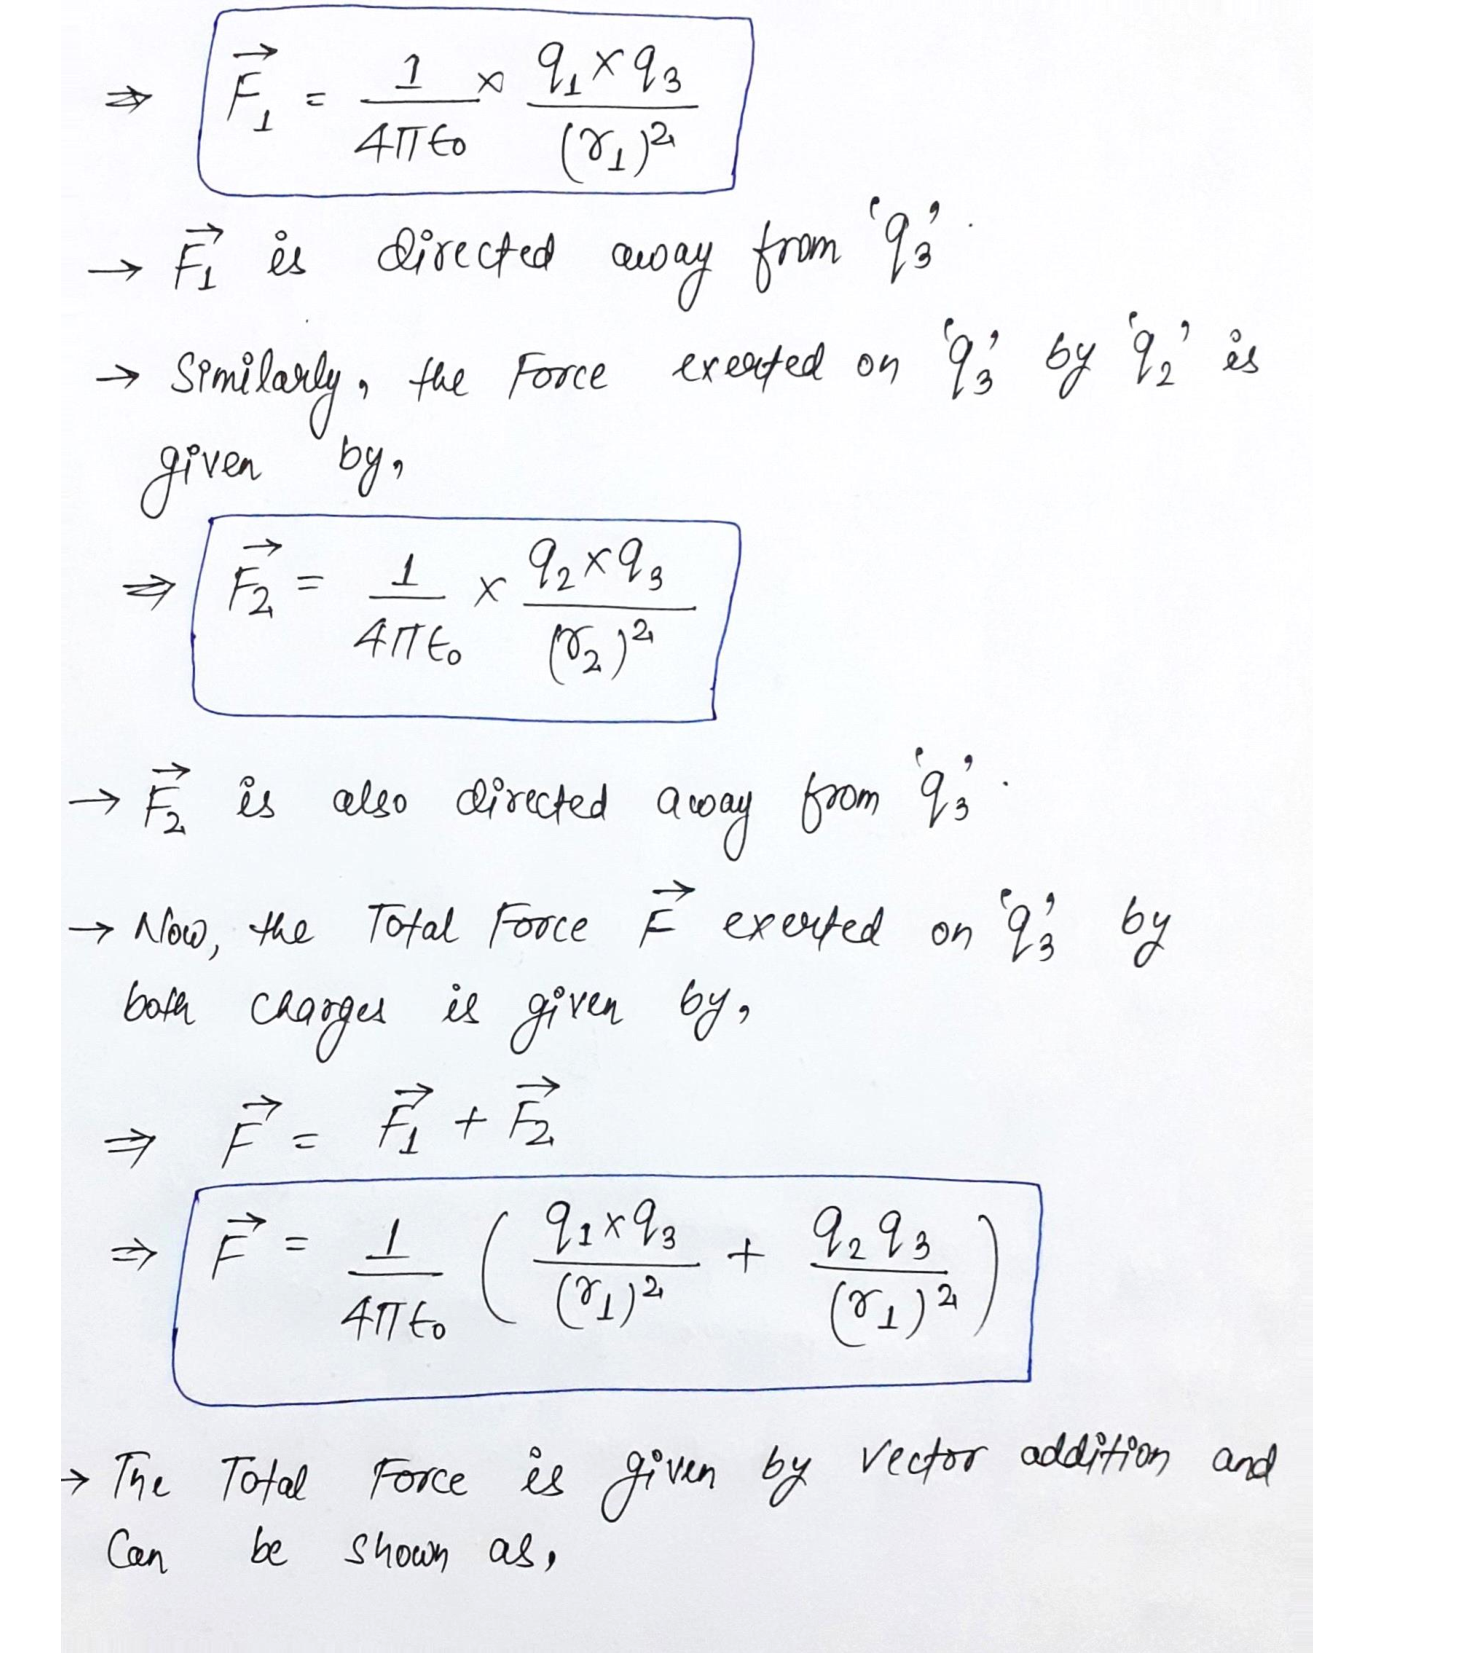 ⇒ F⃗₁ = 1/4πϵ₀ × q₁×q₃/(r₁)²
→ F⃗₁ is directed away from 'q₃'.
→ Similarly, the Force exerted on 'q₃' by 'q₂' is
given by,
⇒ F⃗₂ = 1/4πϵ₀ × q₂×q₃/(r₂)²
→ F⃗₂ is also directed away from 'q₃'.
→ Now, the Total Force F⃗ exerted on 'q₃' by
both charges is given by,
⇒ F⃗ = F⃗₁ + F⃗₂
⇒ F⃗ = 1/4πϵ₀ ( q₁×q₃/(r₁)² + q₂q₃/(r₁)² )
→ The Total Force is given by vector addition and
Can be shown as,